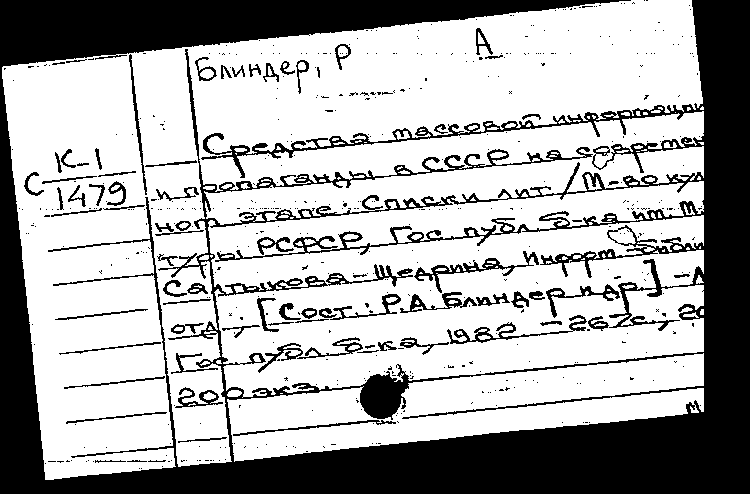 Блиндер, Р А
Средства массовой информации
К-1
С 1479
и пропаганды в СССР на современ
ном этапе: Списки лит. / М-во куль
туры РСФСР, Гос публ б-ка им. М.
Салтыкова-Щедрина, Информ.-библи
отд.; [Сост.: Р.А. Блиндер и др.] - Л
Гос публ. б-ка, 1982 - 267с.; 20
200 экз.
м